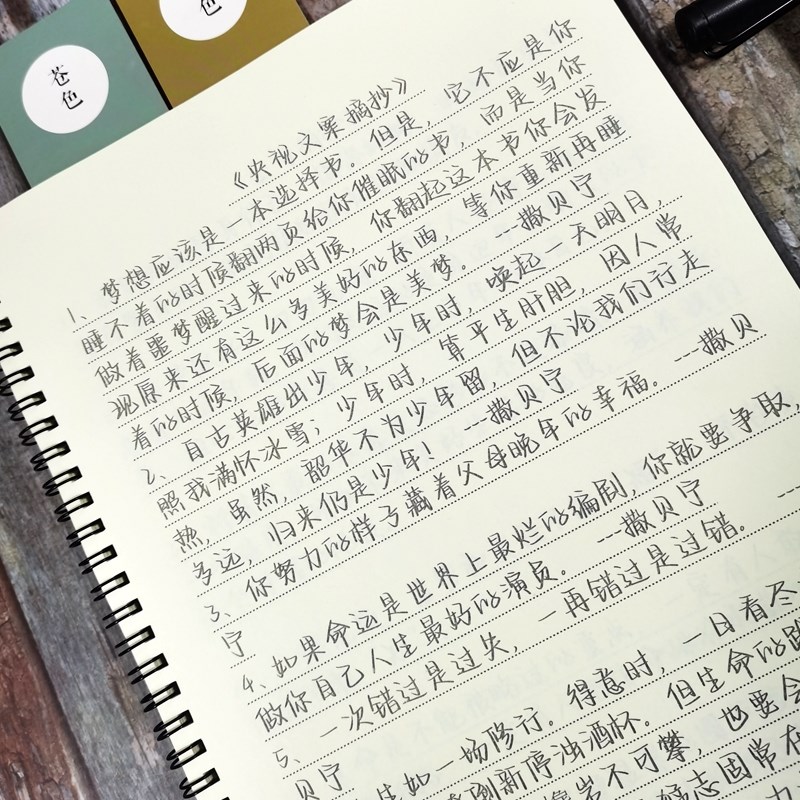 苍色
色
《央视文案摘抄》
1、梦想应该是一本选择书。但是，它不应是你
睡不着的时候翻两页给你催眠的书，而是当你
做着噩梦醒过来的时候，你翻起这本书你会发
现原来还有这么多美好的东西，等你重新再睡
着的时候，后面的梦会是美梦。--撒贝宁
2、自古英雄出少年，少年时，唤起一天明月，
照我满怀冰雪；少年时，算平生肝胆，因人常
热，虽然，韶华不为少年留，但不论我们行走
多远，归来仍是少年！--撒贝宁
3、你努力的样子藏着父母晚年的幸福。--撒贝
宁
4、如果命运是世界上最烂的编剧，你就要争取，
做你自己人生最好的演员。--撒贝宁
5、一次错过是过失，一再错过是过错。--
贝宁
生如一场修行。得意时，一日看尽
新停浊酒杯。但生命的路
岩不可攀，也要会
志固常在